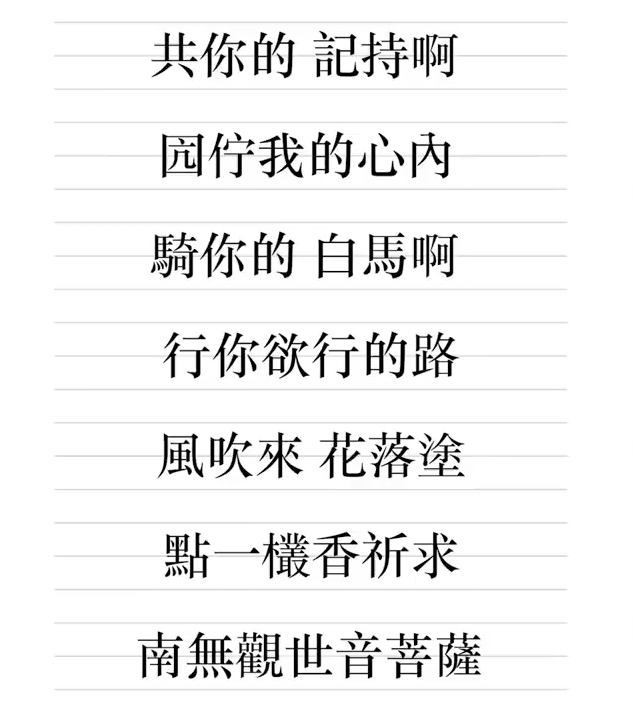 共你的 記持啊
囥佇我的心內
騎你的 白馬啊
行你欲行的路
風吹來 花落塗
點一欉香祈求
南無觀世音菩薩